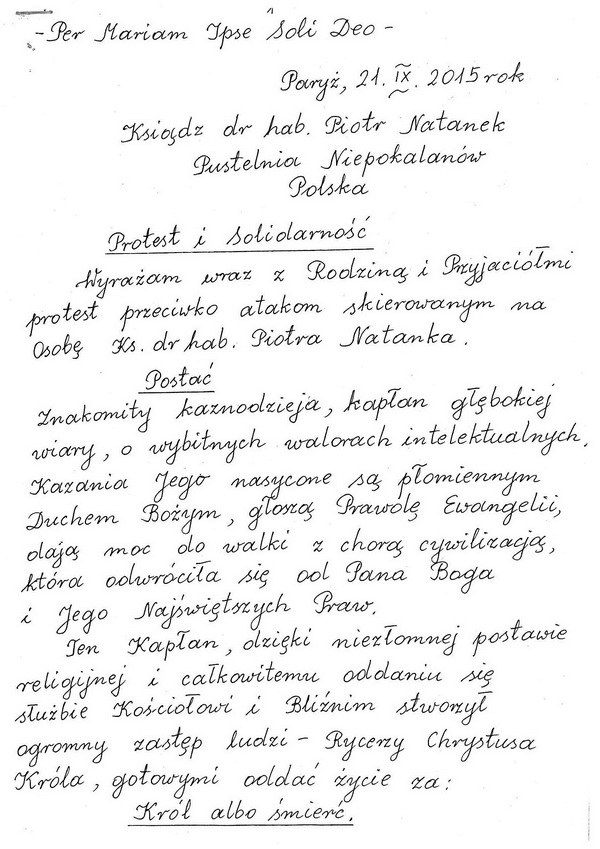 - Per Mariam Ipse Soli Deo -
Paryż, 21. IX. 2015 rok
Ksiądz dr hab. Piotr Natanek
Pustelnia Niepokalanów
Polska
Protest i Solidarność
Wyrażam wraz z Rodziną i Przyjaciółmi
protest przeciwko atakom skierowanym na
Osobę Ks. dr hab. Piotra Natanka.
Postać
Znakomity kaznodzieja, kapłan głębokiej
wiary, o wybitnych walorach intelektualnych.
Kazania Jego nasycone są płomiennym
Duchem Bożym, głoszą Prawdę Ewangelii,
dają moc do walki z chorą cywilizacją,
która odwróciła się od Pana Boga
i Jego Najświętszych Praw.
Ten Kapłan, dzięki niezłomnej postawie
religijnej i całkowitemu oddaniu się
służbie Kościołowi i Bliźnim stworzył
ogromny zastęp ludzi - Rycerzy Chrystusa
Króla, gotowymi oddać życie za:
Król albo śmierć.